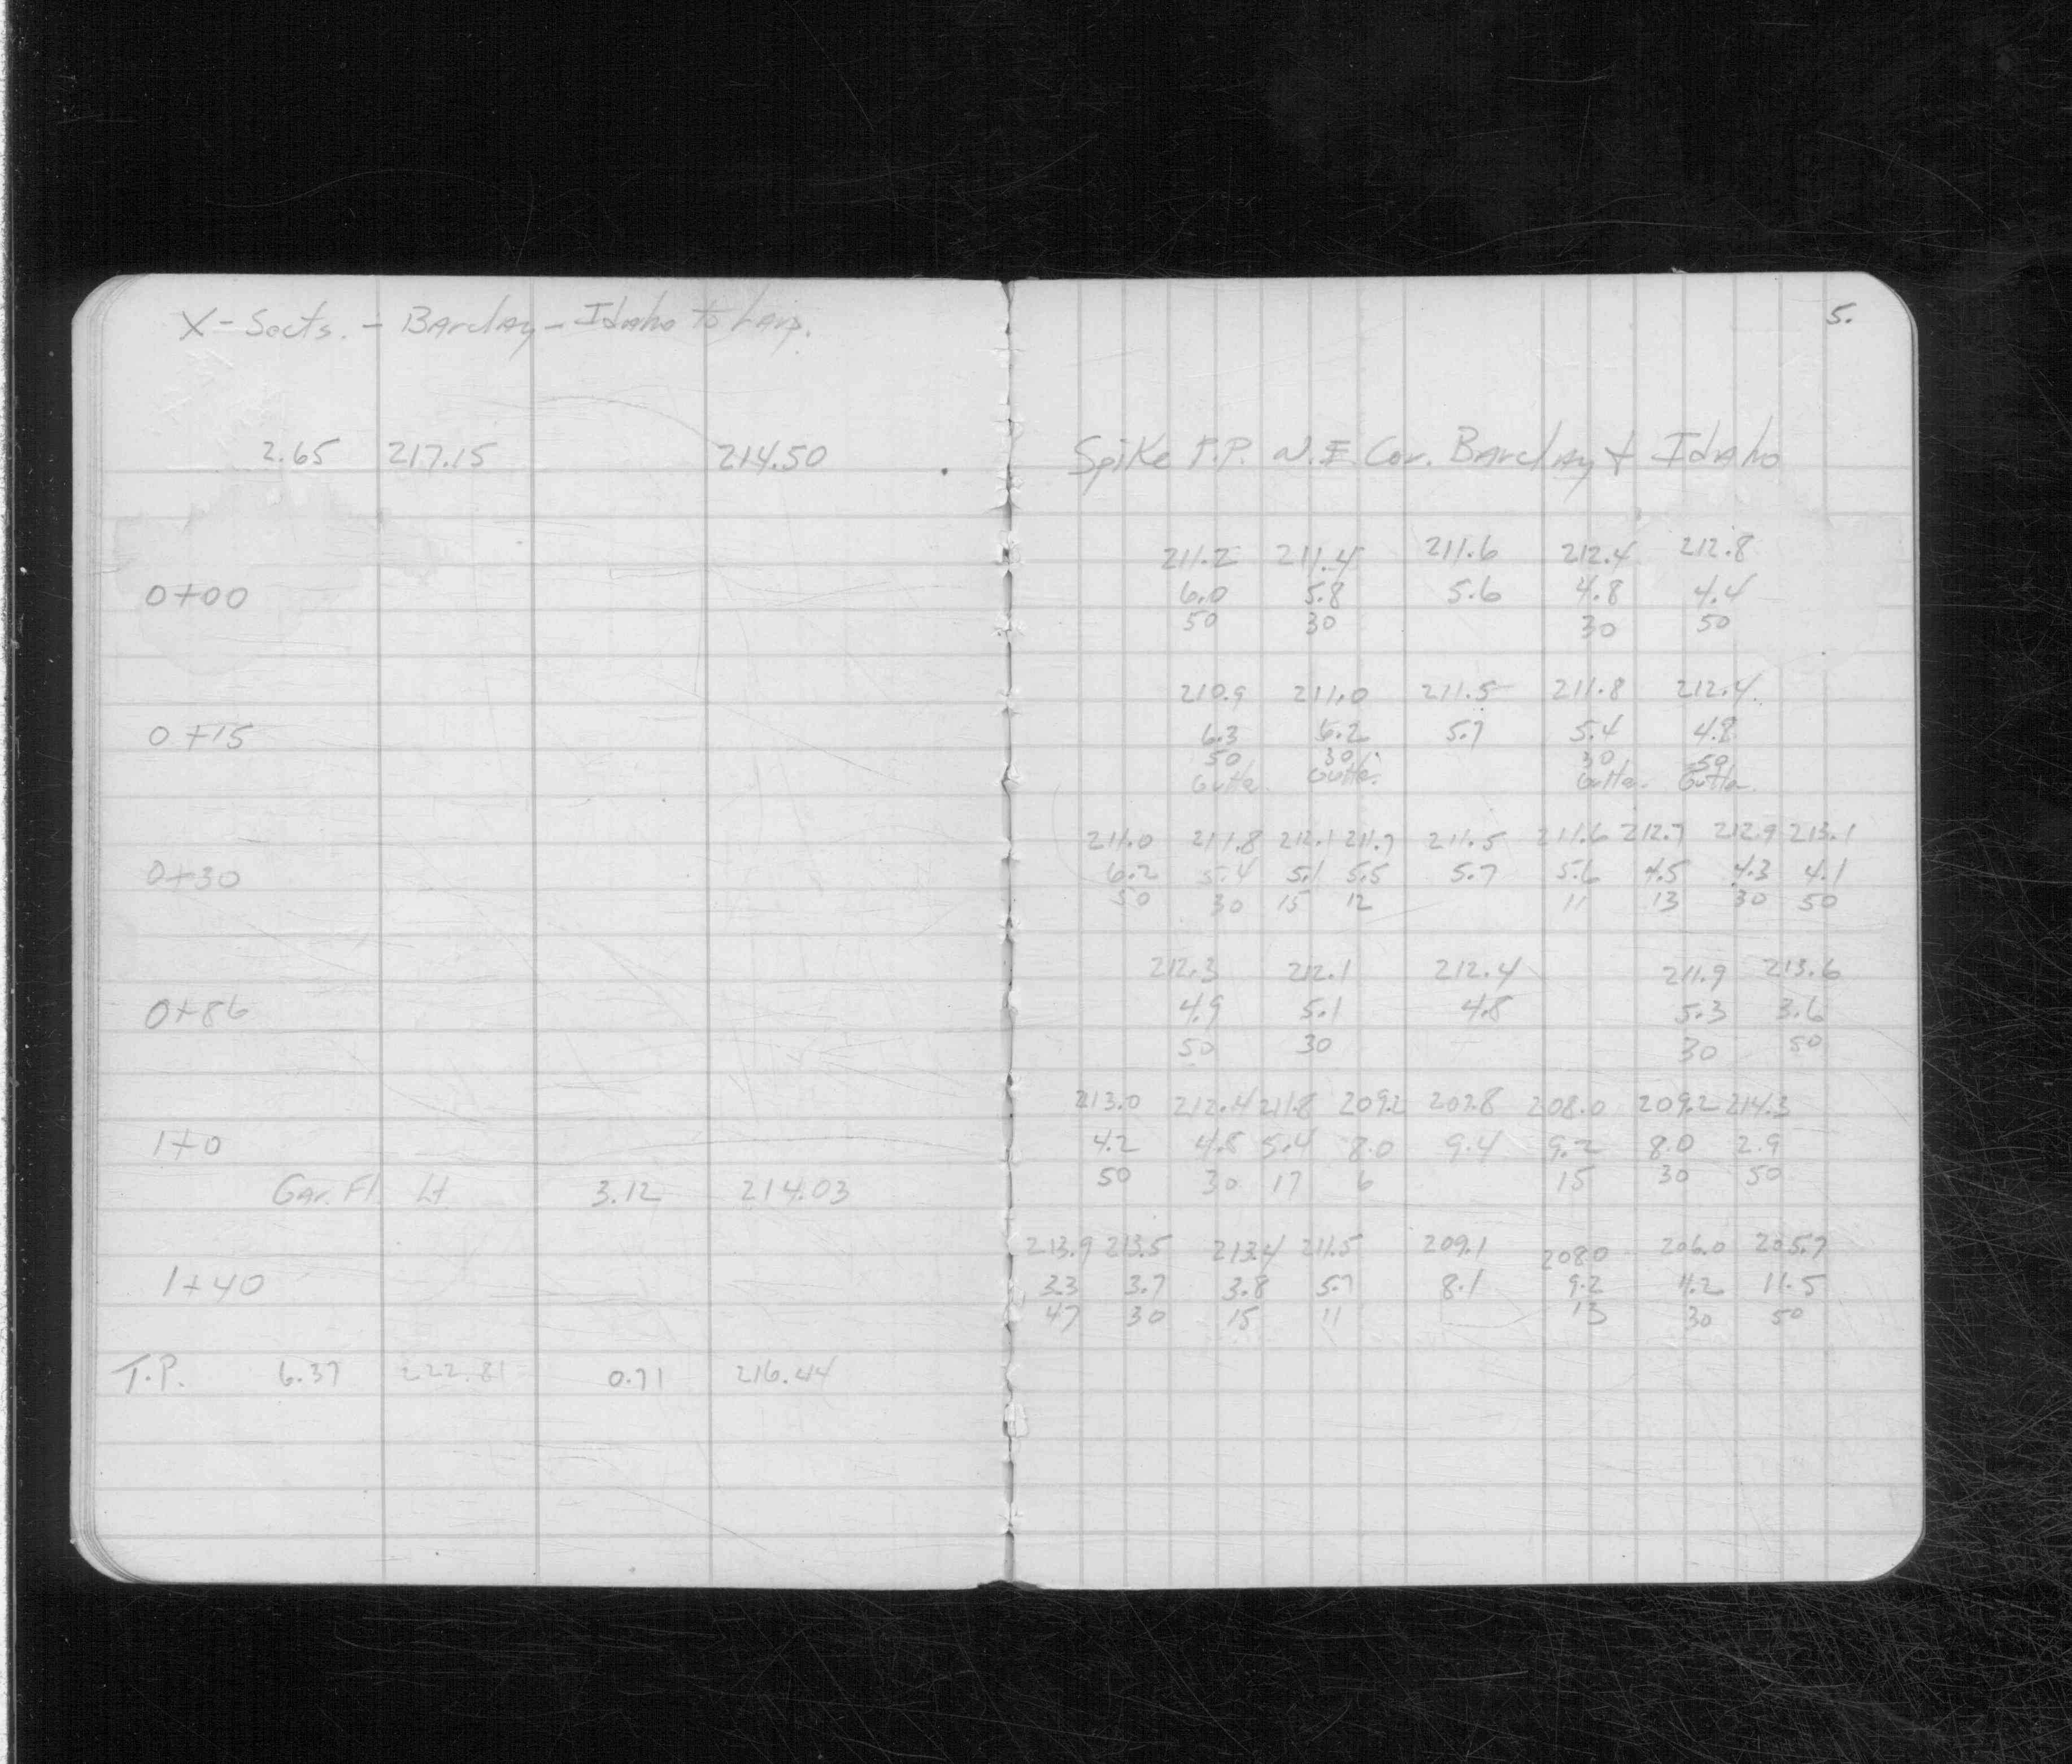 X-Sects. - Barclay - Idaho to Lang.
5.
2.65 217.15 214.50
Spike P.P. N.E. Cor. Barclay & Idaho
211.2 211.4 211.6 212.4 212.8
0+00 6.0 5.8 5.6 4.8 4.4
50 30 30 50
210.9 211.0 211.5 211.8 212.4
0+15 6.3 6.2 5.7 5.4 4.8
50 30 30 50
Gutter Gutter Gutter Gutter
211.0 211.8 212.1 211.7 211.5 211.6 212.7 212.9 213.1
0+30 6.2 5.4 5.1 5.5 5.7 5.6 4.5 4.3 4.1
50 30 15 12 11 13 30 50
212.3 212.1 212.4 211.9 213.6
0+86 4.9 5.1 4.8 5.3 3.6
50 30 30 50
213.0 212.4 211.8 209.2 207.8 208.0 209.2 214.3
1+0 4.2 4.8 5.4 8.0 9.4 9.2 8.0 2.9
50 30 17 6 15 30 50
Gar. Fl. Lt 3.12 214.03
213.9 213.5 213.4 211.5 209.1 208.0 206.0 205.7
1+40 3.3 3.7 3.8 5.7 8.1 9.2 11.2 11.5
47 30 15 11 13 30 50
T.P. 6.37 222.81 0.71 216.44